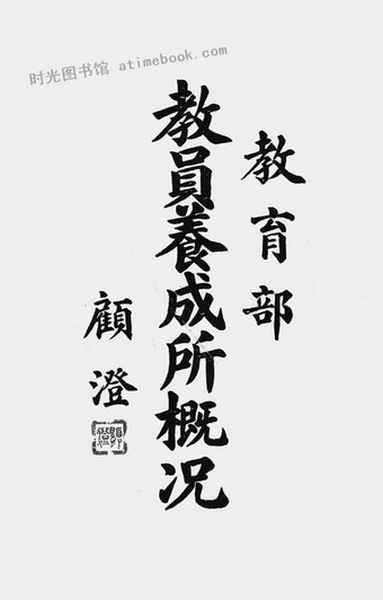 时光图书馆 atimebook.com
教育部
教員養成所概况
顧澄